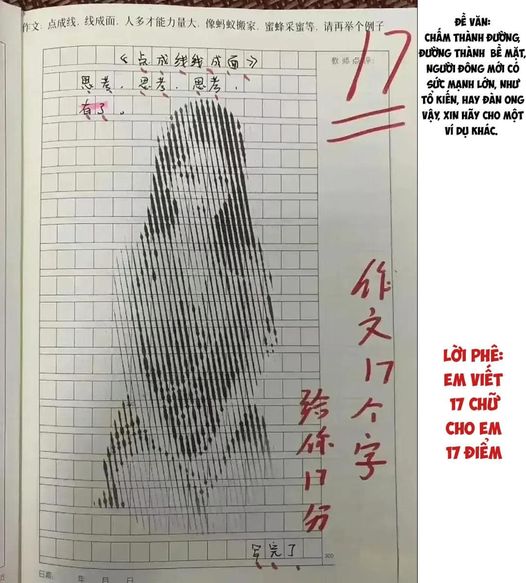 作文: 点成线, 线成面. 人多才能力量大. 像蚂蚁搬家, 蜜蜂采蜜等, 请再举个例子
教师点评:
17
《点成线线成面》
思考, 思考, 思考,
有了。
作文17个字
给你17分
写完了
300
日期: 年 月 日
ĐỀ VĂN:
CHẤM THÀNH ĐƯỜNG,
ĐƯỜNG THÀNH BỀ MẶT,
NGƯỜI ĐÔNG MỚI CÓ
SỨC MẠNH LỚN, NHƯ
TỔ KIẾN, HAY ĐÀN ONG
VẬY, XIN HÃY CHO MỘT
VÍ DỤ KHÁC.
LỜI PHÊ:
EM VIẾT
17 CHỮ
CHO EM
17 ĐIỂM